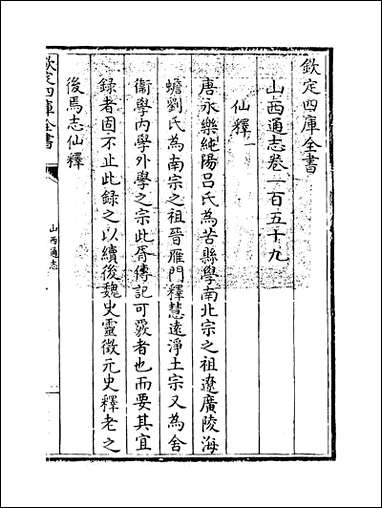 欽定四庫全書
山西通志卷一百五十九
仙釋一
唐永樂純陽呂氏為苦縣學南北宗之祖遼廣陵海
蟾劉氏為南宗之祖晉雁門釋慧遠淨土宗又為舍
衞學內學外學之宗此胥傳記可覈者也而要其宜
録者固不止此録之以續後魏史靈徵元史釋老之
後焉志仙釋
欽定四庫全書
山西通志